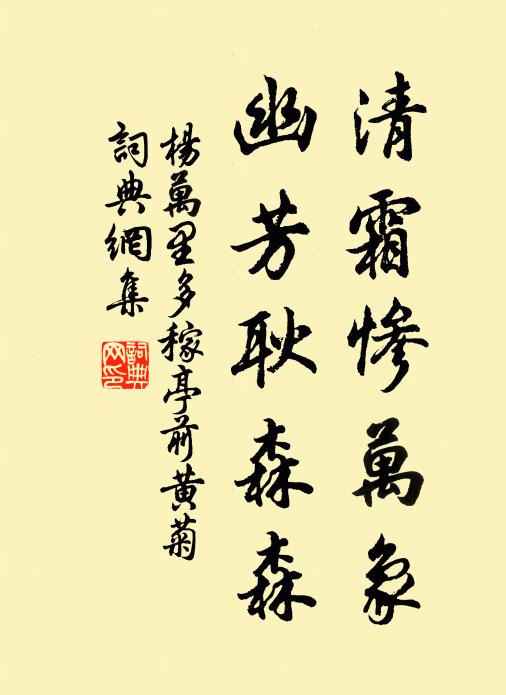 清霜慘萬象
幽芳耿森森
楊萬里多稼亭前黃菊
詞典網集
詞典網印